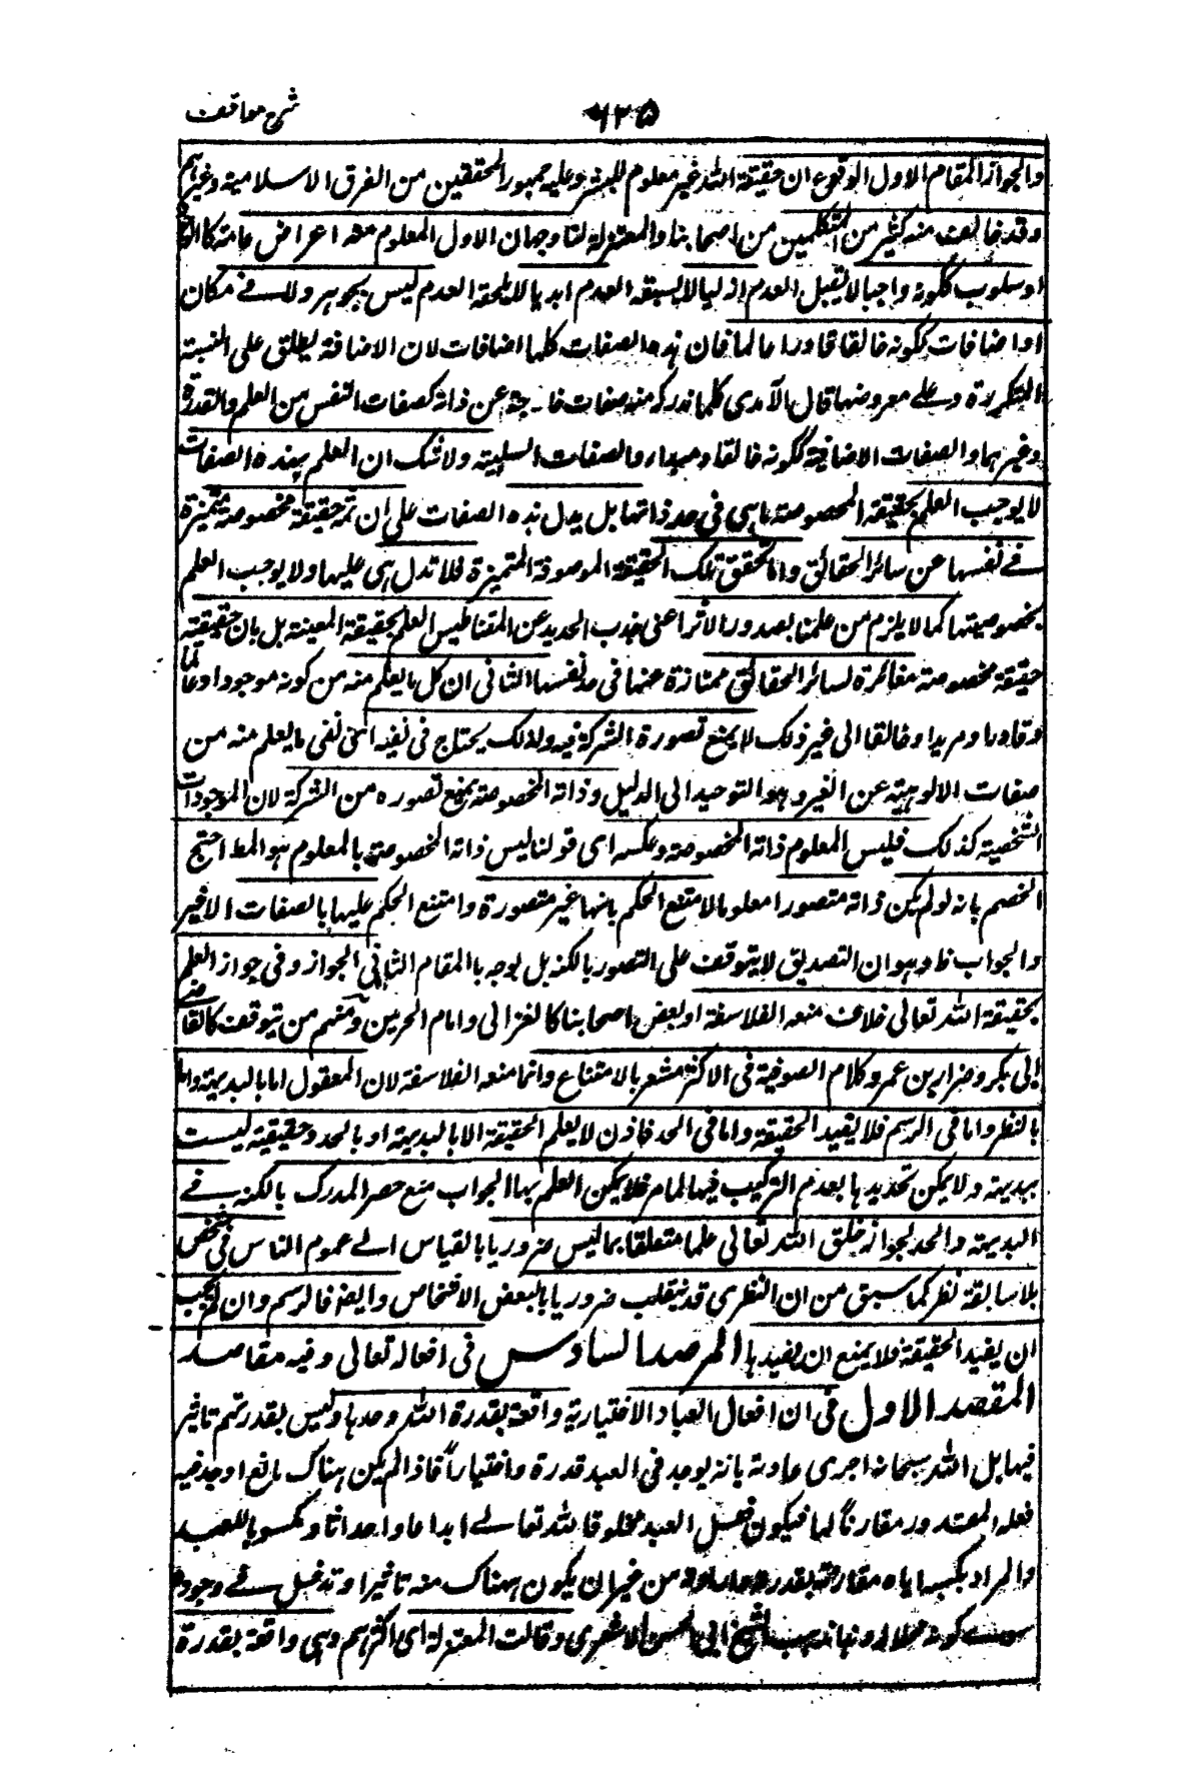 شرح مواقف
٦٢٥
والجواز المقام الاول الوقوع ان حقيقة الله غير معلوم للبشر وعليه جمهور المحققين من الفرق الاسلامية وغيرهم
وقد خالف منه كثير من المتكلمين من اصحابنا والمعتزلة لنا وجهان الاول المعلوم منه اعراض عامة كالوجود
او سلوب ككونه واجبا لا يقبل العدم ازليا لا يسبقه العدم ابديا لا يلحقه العدم ليس بجوهر ولا في مكان
او اضافات ككونه خالقا قادرا عالما فان هذه الصفات كلها اضافات لان الاضافة يطلق على النسبة
المتكررة وعلى معروضها قال الآمدي كلما ندركه منه صفات خارجة عن ذاته كصفات النفس من العلم والقدرة
وغيرهما والصفات الاضافية ككونه خالقا ومبدءا والصفات السلبية ولا شك ان العلم بهذه الصفات
لا يوجب العلم بحقيقته المخصوصة ما هي في حد ذاتها بل يدل هذه الصفات على ان ثمه حقيقة مخصوصة متميزة
في نفسها عن سائر الحقائق واما تحقق تلك الحقيقة الموصوفة المتميزة فلا تدل هي عليها ولا يوجب العلم
بخصوصيتها كما لا يلزم من علمنا بصدور الاثر اعني جذب الحديد عن المقناطيس العلم بحقيقة المعينة بل بان حقيقته
حقيقة مخصوصة مغائرة لسائر الحقائق ممتازة عنها في حد نفسها الثاني ان كل ما يعلم منه من كونه موجودا وعالما
وقادرا ومريدا وخالقا الى غير ذلك لا يمنع تصورة الشركة فيه ولذلك يحتاج في نفيه اي في نفي ما يعلم منه من
صفات الالوهية عن الغير وهو التوحيد الى الدليل وذاته المخصوصة يمنع تصوره من الشركة لان الموجودات
الشخصية كذلك فليس المعلوم ذاته المخصوصة وعكسه اي قولنا ليس ذاته المخصوصة بالمعلوم هو المط احتج
الخصم بانه لو لم يكن ذاته متصورا معلوما لامتنع الحكم بانها غير متصورة وامتنع الحكم عليها بالصفات الاخير
والجواب ظ وهو ان التصديق لا يتوقف على التصور بالكنه بل بوجه ما المقام الثاني الجواز وفي جواز العلم
بحقيقة الله تعالى خلاف منعه الفلاسفة او بعض اصحابنا كالغزالي وامام الحرمين ومنهم من توقف كالقاضي
ابي بكر وضرار بن عمرو وكلام الصوفية في الاكثر مشعر بالامتناع وانما منعه الفلاسفة لان المعقول اما بالبديهة واما
بالنظر واما في الرسم فلا يفيد الحقيقة واما في الحد فاذن لا يعلم الحقيقة الا بالبديهة او بالحد وحقيقته ليست
بديهة ولا يمكن تحديدها بعدم التركيب فيها لما مر فلا يمكن العلم بها الجواب منع حصر المدرك بالكنه في
البديهة والحد لجواز خلق الله تعالى علما متعلقا بما ليس ضروريا بالقياس الى عموم الناس في شخص
بلا سابقة نظر كما سبق من ان النظري قد ينقلب ضروريا لبعض الاشخاص وايضا فالرسم وان لم يجب
ان يفيد الحقيقة فلا يمنع ان يفيدها المرصد السادس في افعاله تعالى وفيه مقاصد
المقصد الاول في ان افعال العباد الاختيارية واقعة بقدرة الله وحدها وليس بقدرتهم تاثير
فيها بل الله سبحانه اجرى عادته بانه يوجد في العبد قدرة واختيارا فاذا لم يكن هناك مانع اوجد فيه
فعله المقدور مقارنا لها فيكون فعل العبد مخلوقا لله تعالى ابداعا واحداثا ومكسوبا للعبد
والمراد بكسبه اياه مقارنته بقدرته وارادته من غير ان يكون هناك منه تاثير او تدخل في وجوده
سوى كونه محلا له وهذا مذهب الشيخ ابي الحسن الاشعري وقالت المعتزلة اي اكثرهم وهي واقعة بقدرة